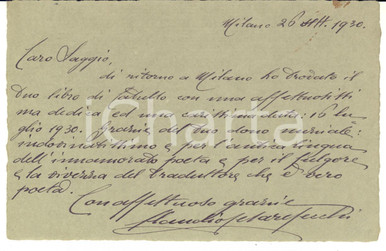 Milano 26 sett. 1930.
Caro Saggio,
di ritorno a Milano ho trovato il
tuo libro di Catullo con una affettuosissi
ma dedica ed una carissima data: 16 lu
glio 1930. Grazie del tuo dono nuziale:
indovinatissimo e per l'antica lingua
dell'innamorato poeta e per il fulgore
e la vivezza del traduttore che è vero
poeta.
Con affettuose grazie